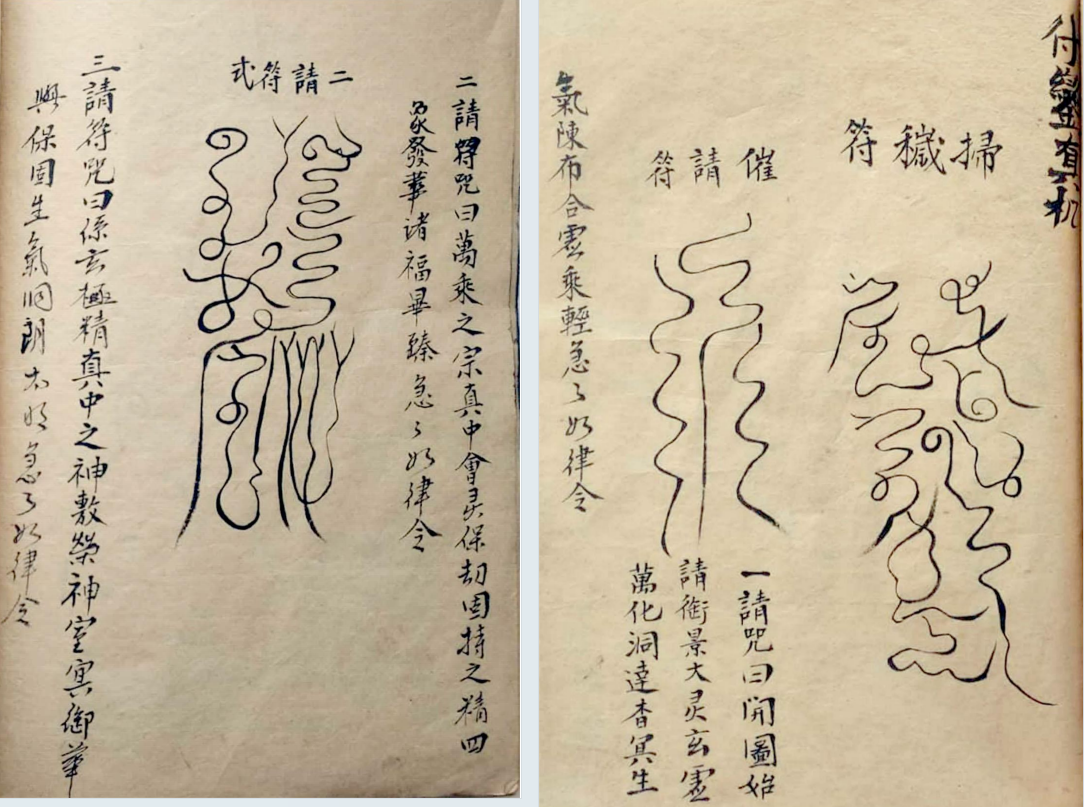 符真机
掃穢符
催請符
一請咒曰開圖始
請衙景大灵玄虛
萬化洞達杳冥生
氣陳布合雲乘輕急々如律令
二請符咒曰萬乘之宗真中會灵保劫固持之精四
彖發華諸福畢臻急々如律令
二請符式
三請符咒曰係玄極精真中之神敷榮神室冥御華
與保固生氣洞朗太明急々如律令